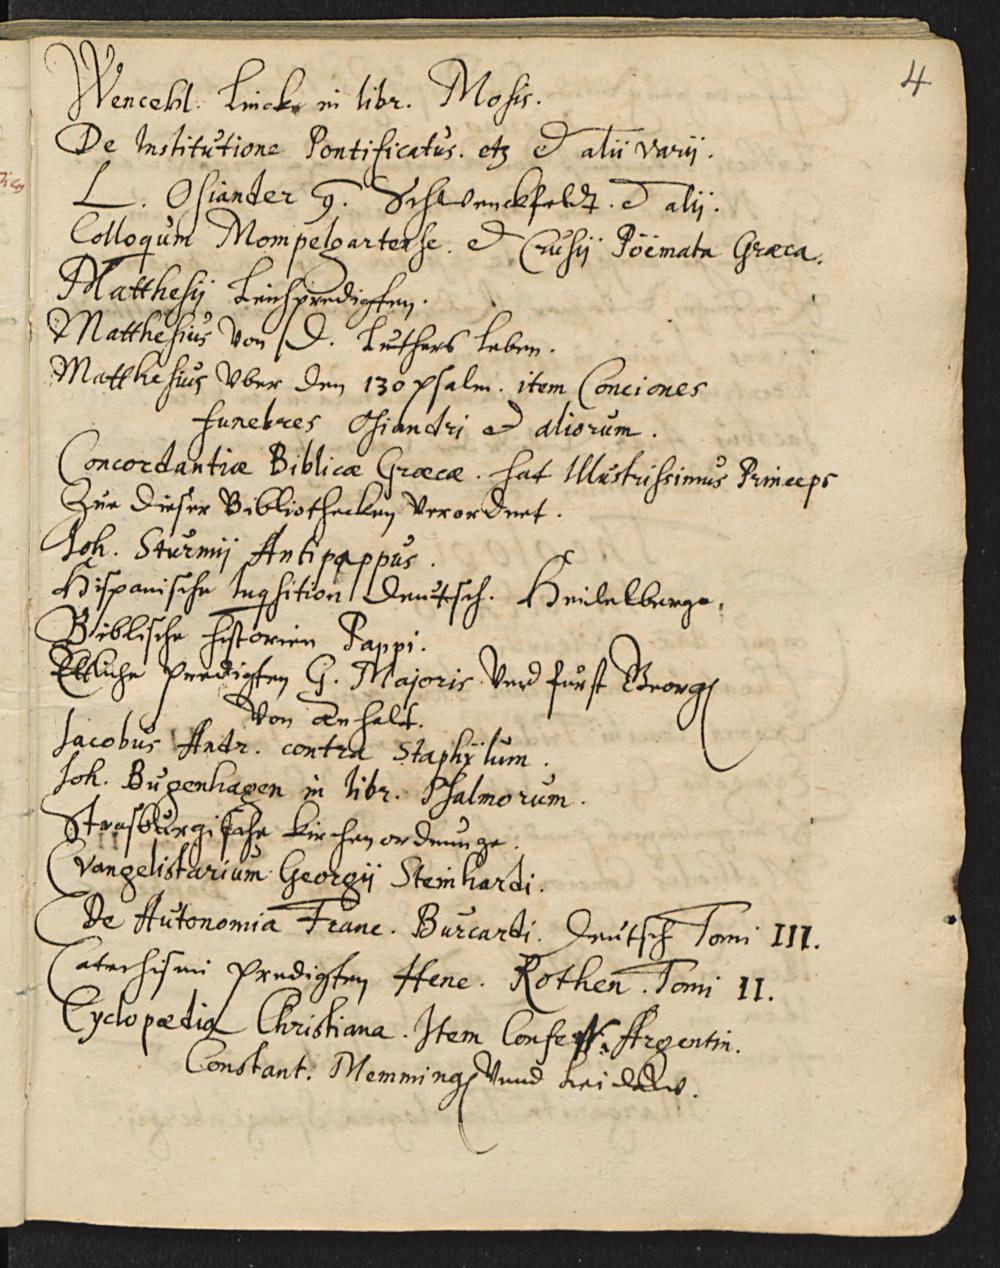 4
Wencesl. Linck in libr. Mosis.
De Institutione Pontificatus. etz et alii varij.
L. Osiander q. Schwenckfeldt. et alij.
Colloqum Mompelgartense. et Crusij Poëmata Græca.
Matthesij Leichpredigten.
Matthesius von D. Luthers leben.
Matthesius vber den 130 psalm. item Conciones
funebres Osiandri et aliorum.
Concordantiæ Biblicæ Græcæ. hat Illustrissimus Princeps
Zue dieser Bibliothecken verordnet.
Joh. Sturmij Antipappus.
Hispanische Inqsition Deutsch. Heidelberge.
Biblische historien Pappi.
Ettliche predigten G. Majoris vnd furst Georg
von Anhalt.
Jacobus Andr. contra Staphylum.
Joh. Bugenhagen in libr. Psalmorum.
Strasburgische kirchenordnunge.
Evangelistarium Georgij Steinhardi.
De Autonomia Franc. Burcardi. Deutsch Tomi III.
Catechismi predigten Hene. Rothen. Tomi II.
Cyclopædia Christiana. Item Confess. Argentin.
Constant. Memming vnnd